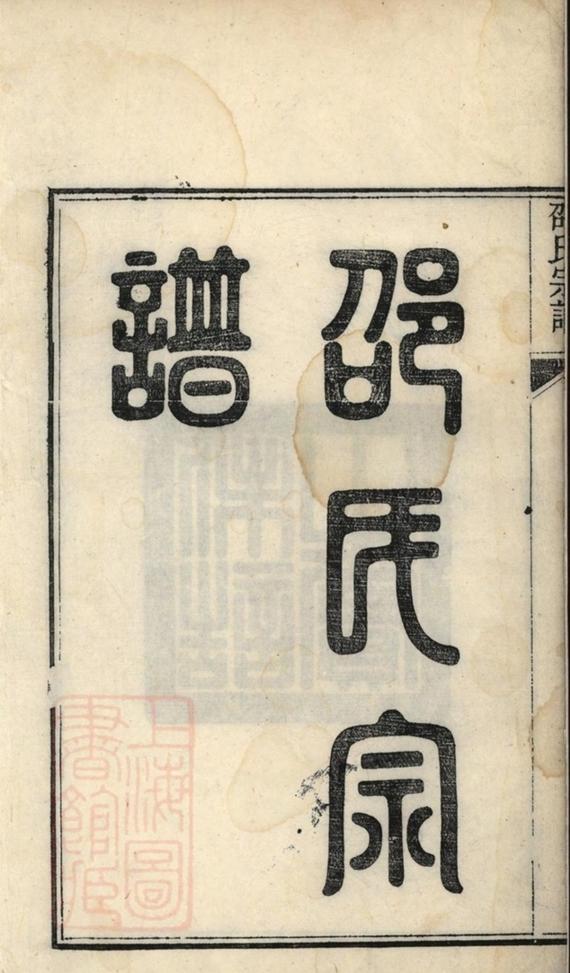 邵氏宗譜
邵氏宗
譜
上海圖
書館藏